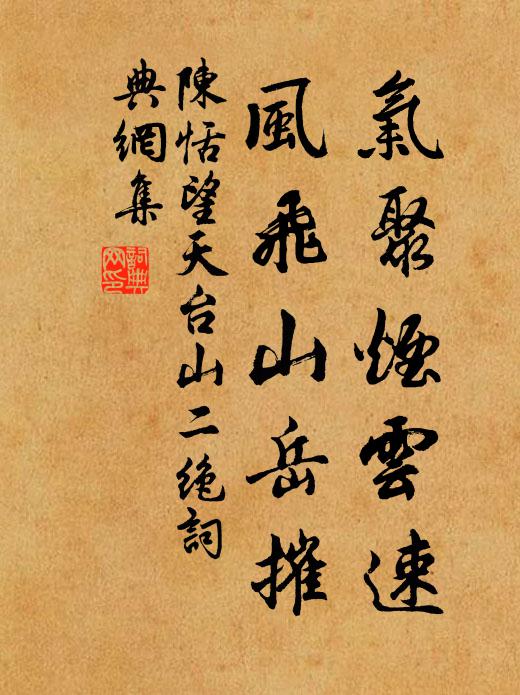 氣聚煙雲速
風飛山岳摧
陳恬望天台山二絶詞
典網集
詞典
网印